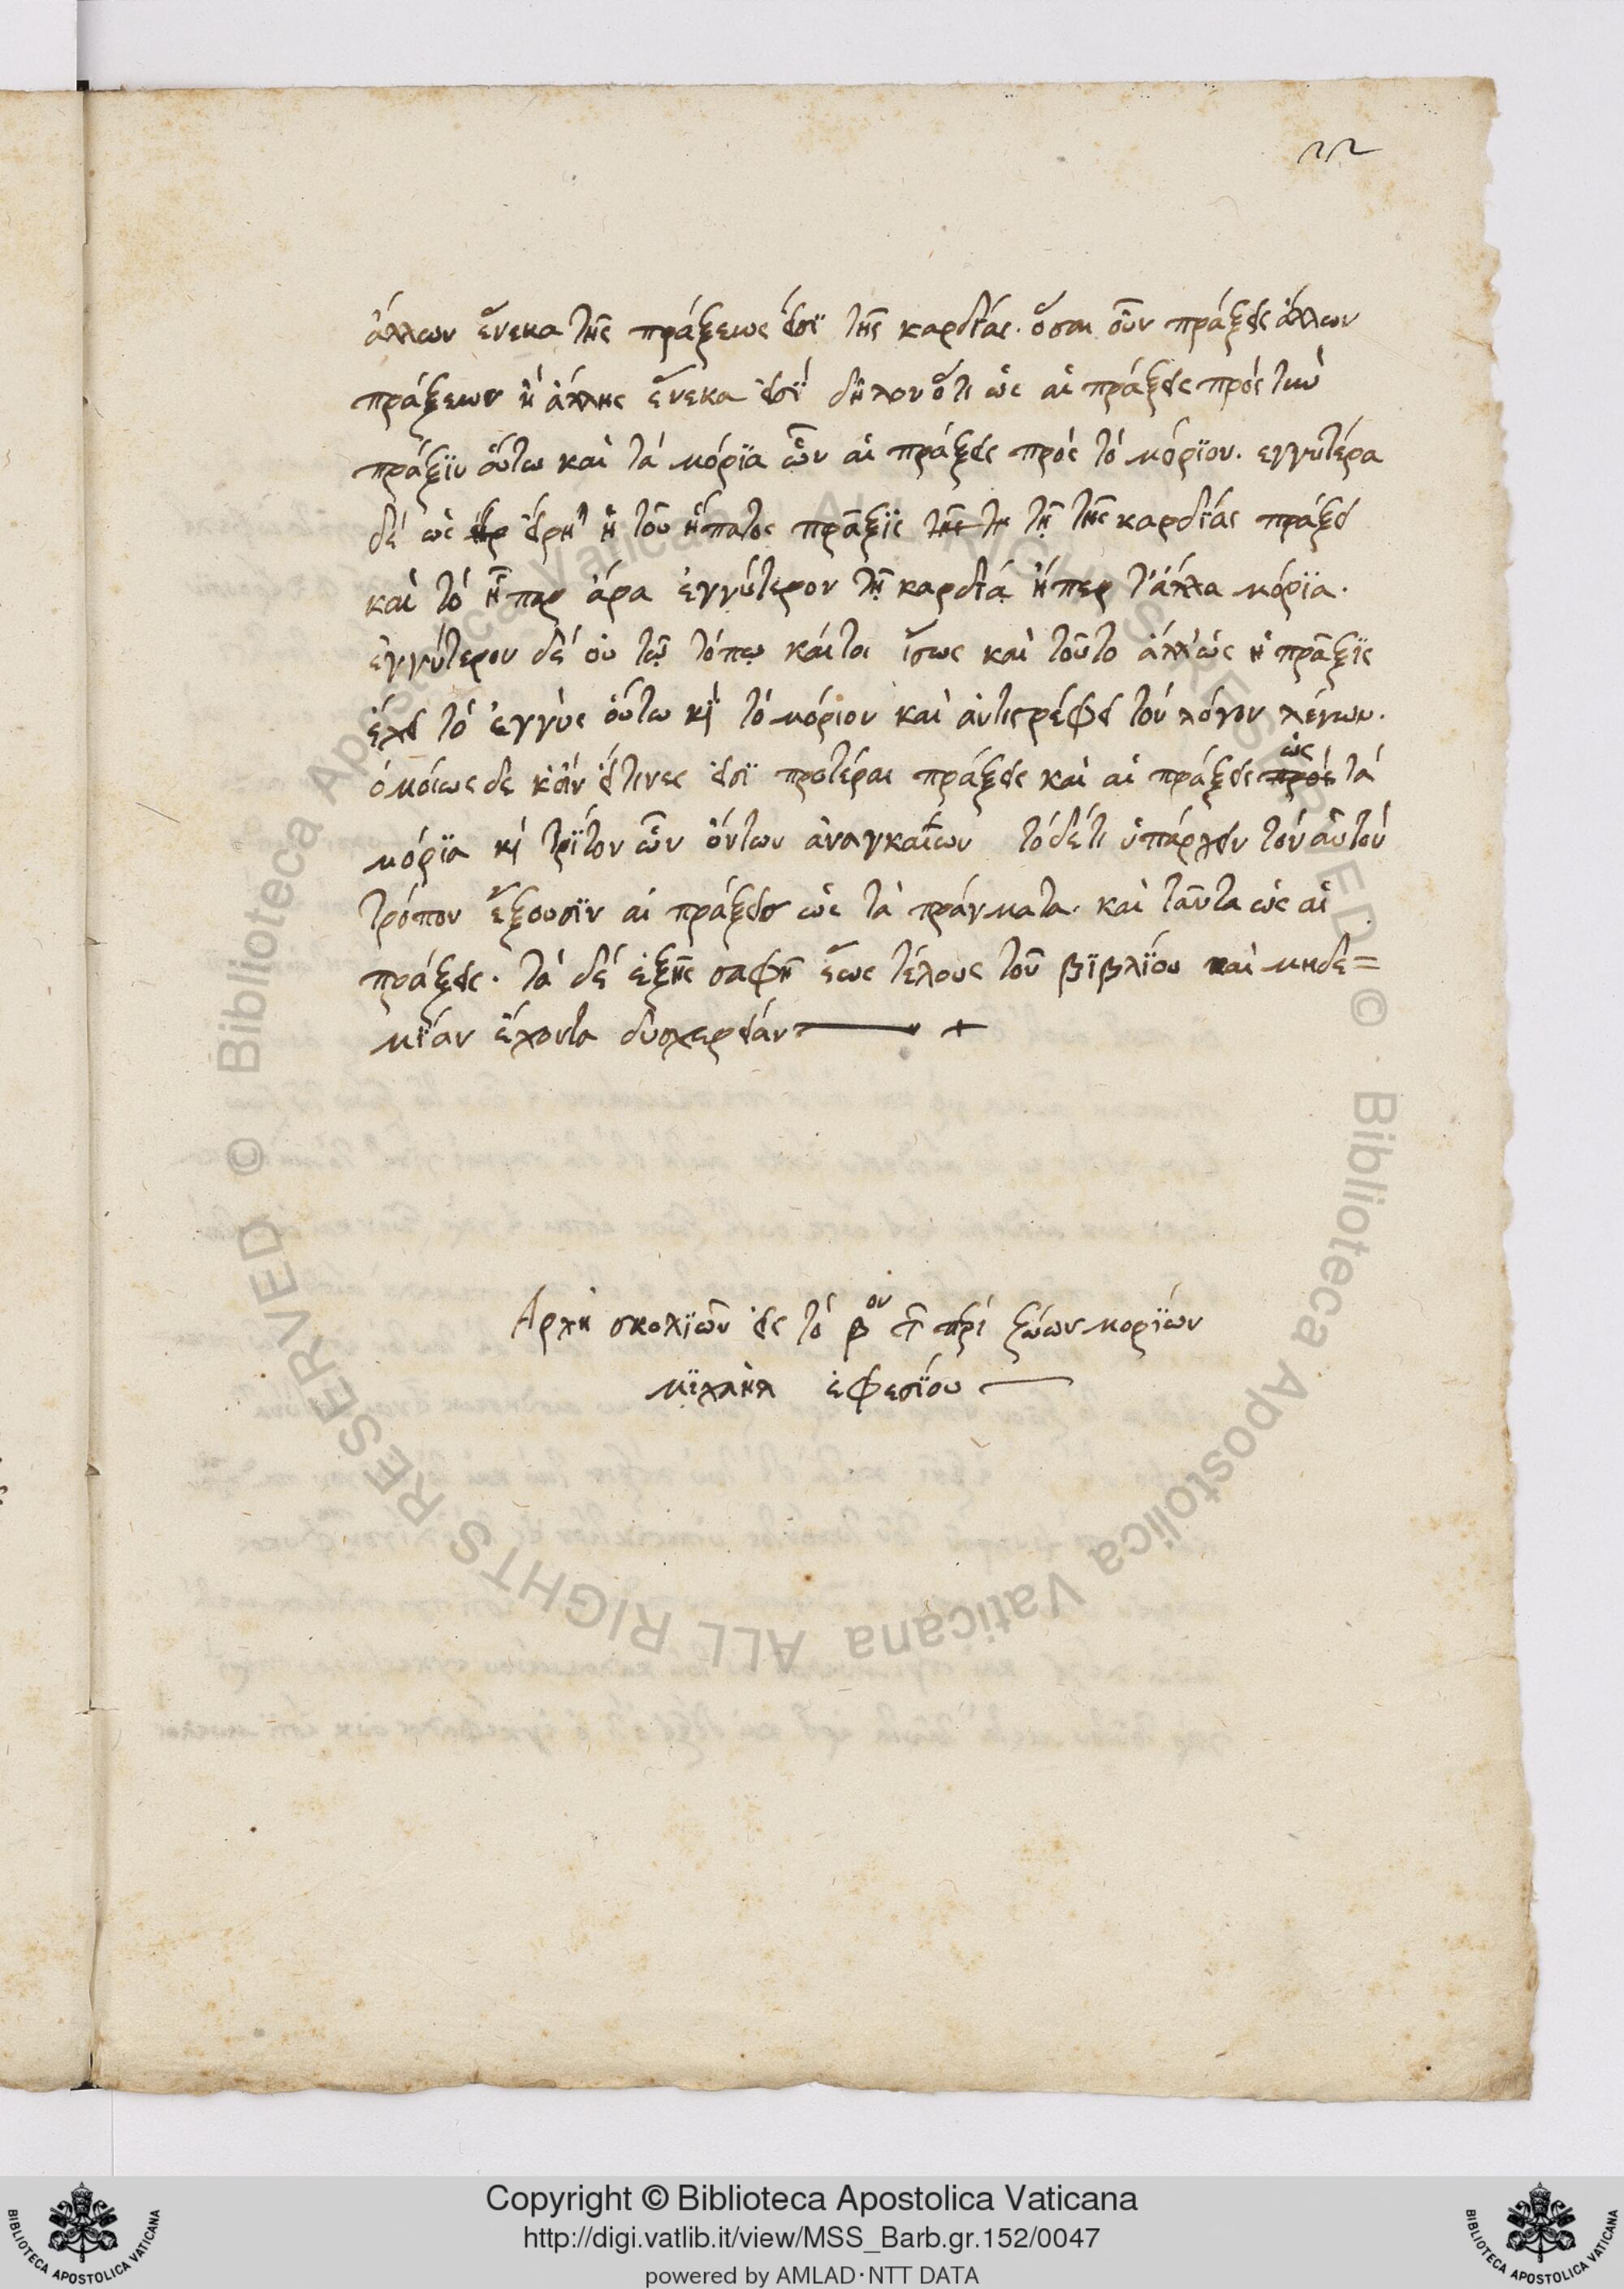 22
ἄλλων ἕνεκα τῆς πράξεως εἰσὶ τῆς καρδίας. ὅσαι οὖν πράξεις ἄλλων
πράξεων ἢ ἄλλης ἕνεκα εἰσὶ δῆλον ὅτι ὡς αἱ πράξεις πρὸς τὴν
πράξϊν οὕτω καὶ τὰ μόρϊα ὧν αἱ πράξεις πρὸς τὸ μόρϊον. εγγυτέρα
δὲ ὡς εἴρηται ἡ τοῦ ἥπατος πρᾶξϊς τῆς τῆ τῆς καρδΐας πράξει
καὶ τὸ ἧπαρ ἄρα ἐγγύτερον τῆ καρδία ἤπερ τἄλλα μόρϊα.
ἐγγύτερον δὲ οὐ τῷ τόπῳ καίτοι ἴσως καὶ τοῦτο ἀλλ' ὡς ἡ πρᾶξϊς
ἔχει τὸ ἐγγὺς οὕτω καὶ τὸ μόριον καὶ ἀντιστρέφει τὸν λόγον λέγων.
ὁμοίως δε κἂν εἴ τινες εἰσὶ προτέραι πράξεις καὶ αἱ πράξεις πρὸς ὡς τὰ
μόρϊα καὶ τρΐτον ὧν ὄντων ἀναγκαῖων τὸ δέ τι ὑπάρχειν τὸν αὐτὸν
τρόπον ἕξουσϊν αἱ πράξεις ὡς τὰ πράγματα. καὶ ταῦτα ὡς αἱ
πράξεις. τὰ δὲ ἑξῆς σαφῆ ἕως τέλους τοῦ βϊβλΐου καὶ μηδε=
μΐαν ἔχοντα δυσχερείαν +
Αρχὴ σχολϊῶν εἰς τὸ βον τῶν περὶ ζώων μορΐων
μϊχαὴλ ἐφεσΐου
Copyright © Biblioteca Apostolica Vaticana
http://digi.vatlib.it/view/MSS_Barb.gr.152/0047
powered by AMLAD·NTT DATA
BIBLIOTECA APOSTOLICA VATICANA
BIBLIOTECA APOSTOLICA VATICANA
© Biblioteca Apostolica Vaticana ALL RIGHTS RESERVED © Biblioteca Apostolica Vaticana ALL RIGHTS RESERVED